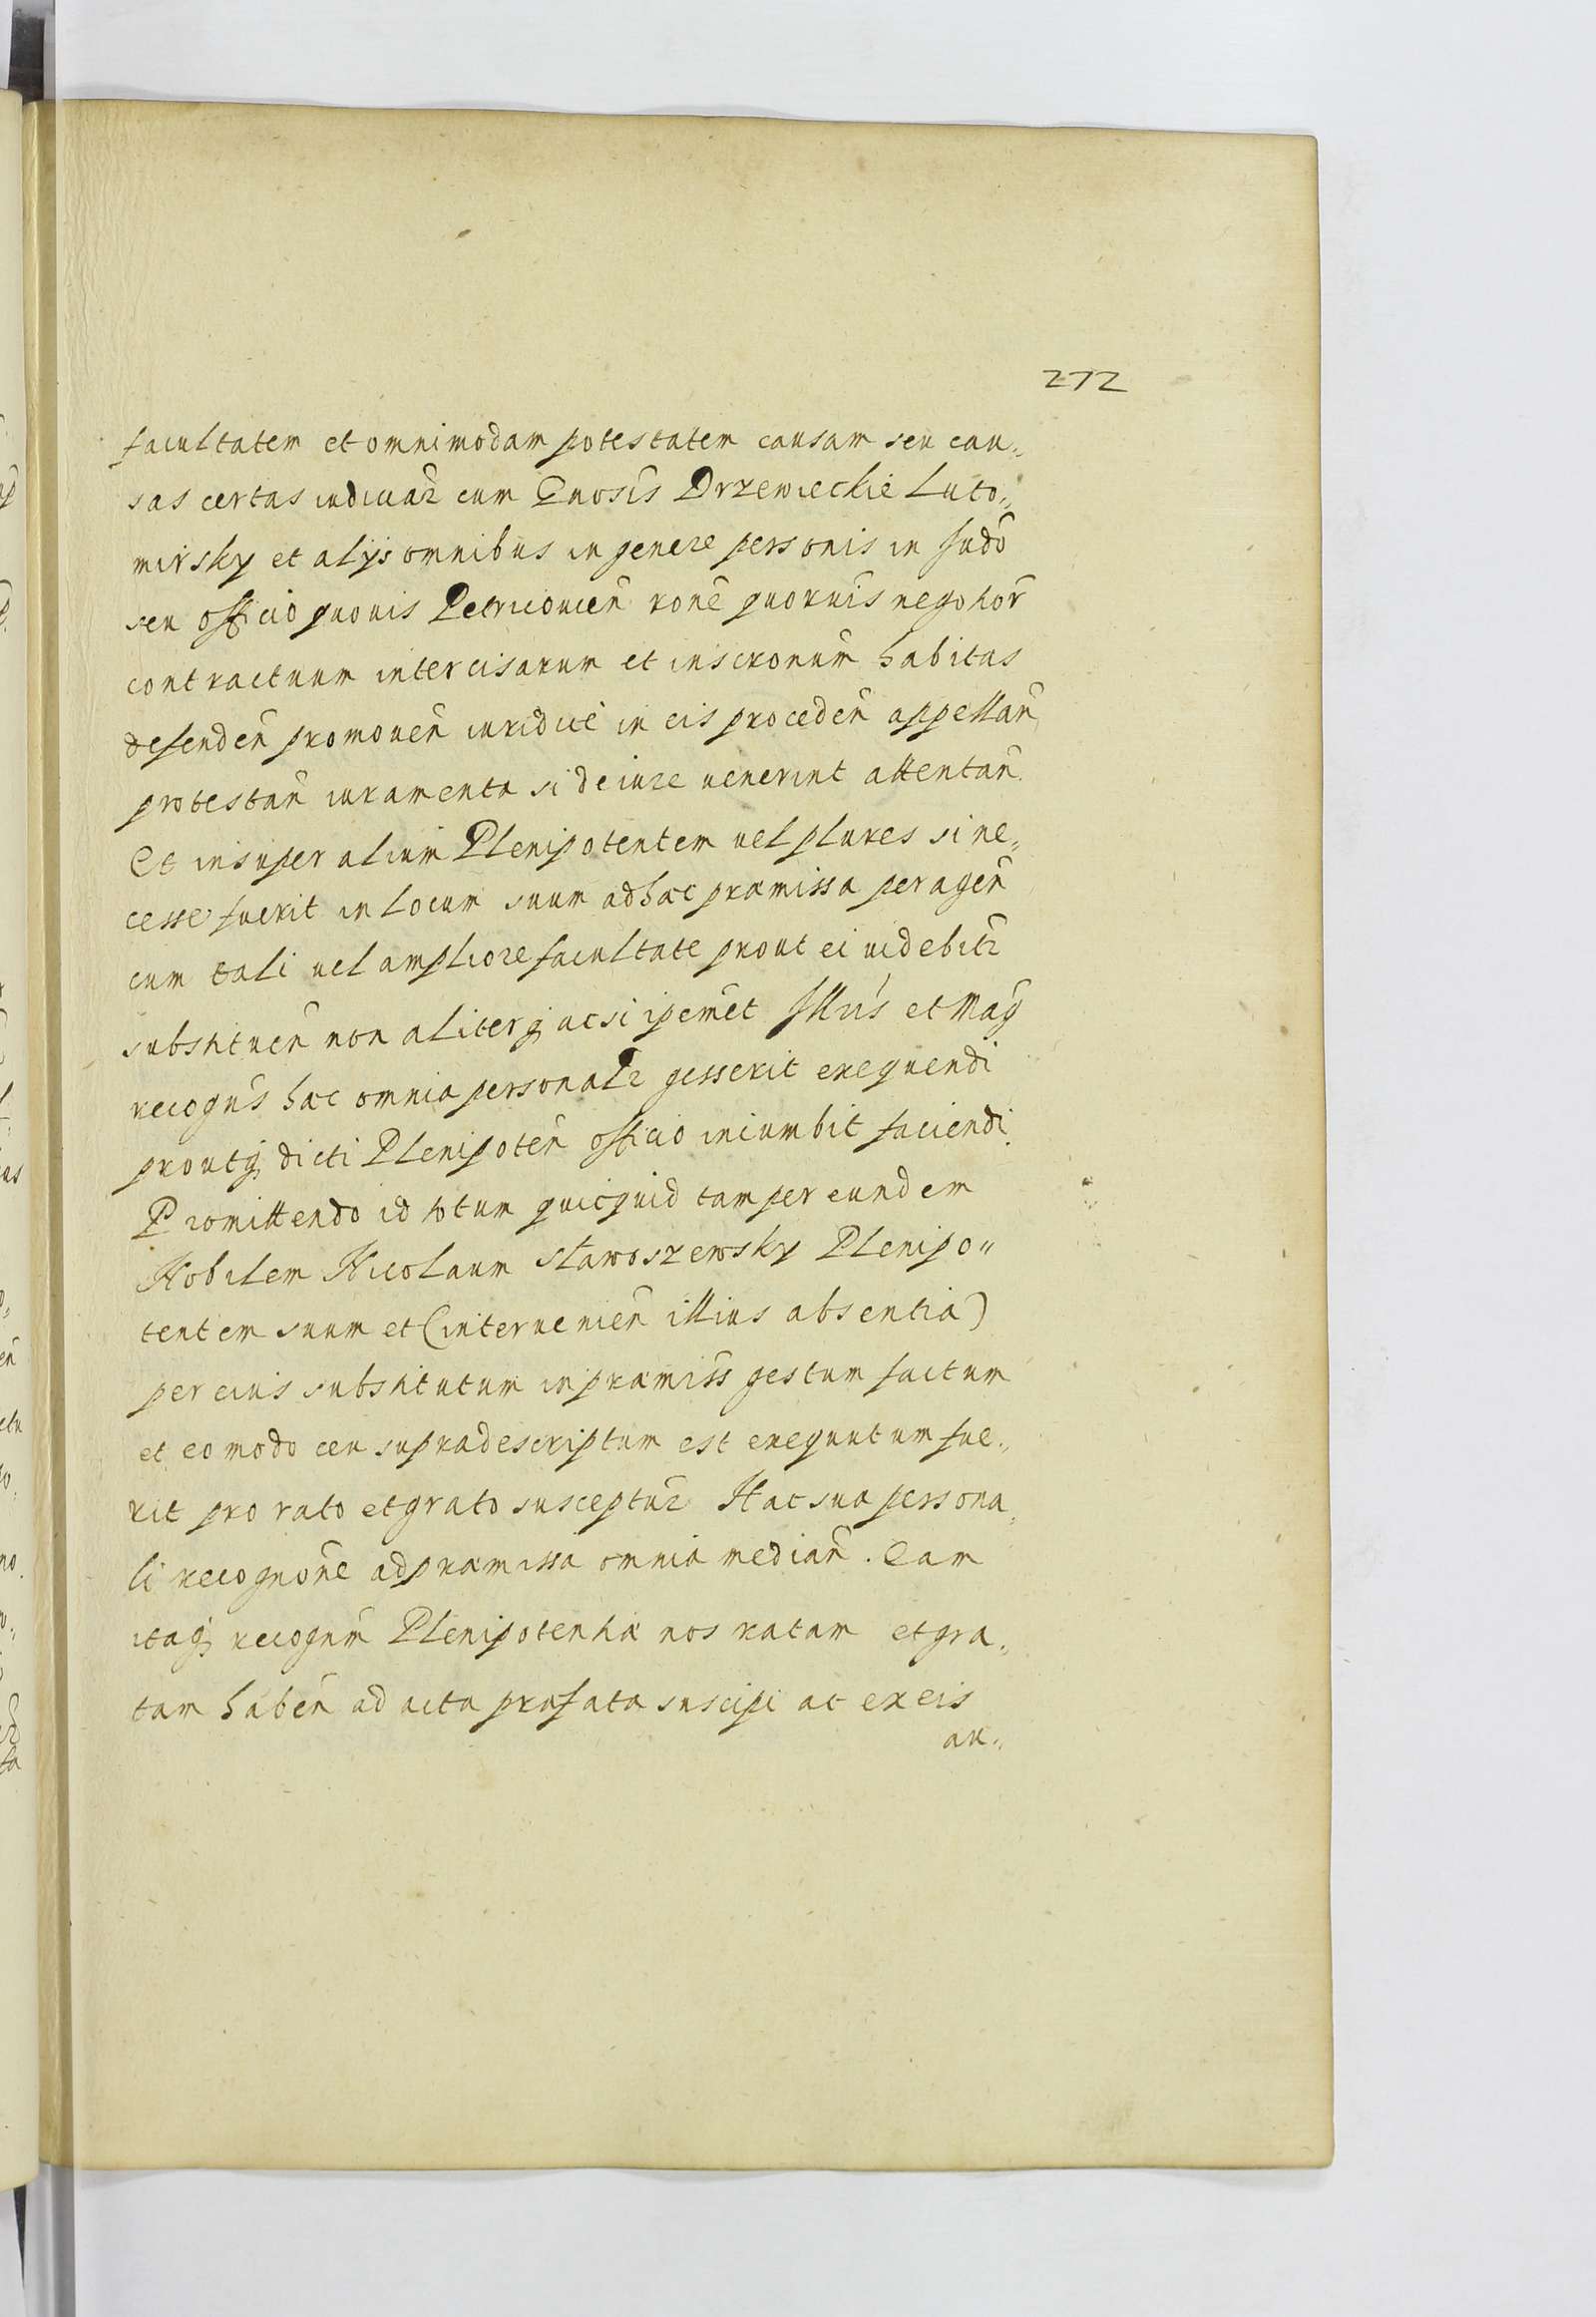 272
facultatem et omnimodam potestatem causam seu cau„
sas certas iudiciar̃ cum Gñosis Drzewieckie Luto„
mirsky et alijs omnibus in genere personis in Judõ
seu officio quovis Petricovien̄ rõne quorũis negotior̃
contractuum intercisarum et inscronum̃ habitas
defenden̄ promouen̄ iuridicè in eis proceden̄ appellan̄
protestan̄ iuramenta si de iure uenerint attentan̄.
Et insuper alium Plenipotentem uel plures si ne„
cesse fuerit in locum suum ad hæc præmissa peragen̄
cum tali uel ampliore facultate prout ei uidebitr̃
substituen̄ non aliterq̨ ac si ipemet̃ Illris et Mag̃
recogn̄s hæc omnia personalr̃ gesserit exequendi
proutq̨ dicti Plenipoten̄ officio incumbit faciendi.
Promittendo id totum quicquid tam per eundem
Nobilem Nicolaum Sławoszewsky Plenipo„
tentem suum et (interuenien̄ illius absentia)
per eius substitutum in præmiss̃ gestum factum
et eo modo ceu supradescriptum est exequutum fue„
rit pro rato et grato susceptur̃ Hac sua persona„
li recognõne ad præmissa omnia median̄. Eam
itaq̨ recognm̃ Plenipotentiæ nos ratam et gra„
tam haben̄ ad acta præfata suscipi ac ex eis
au„